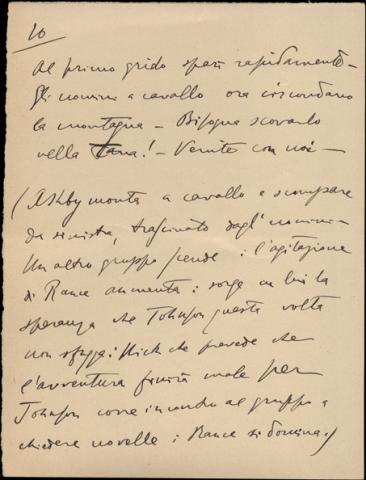 10
Al primo grido sparì rapidamente –
Gli uomini a cavallo ora circondano
la montagna – Bisogna scovarlo
nella tana! – Venite con noi –
(Ashby monta a cavallo e scompare
da sinistra, trascinato dagli uomini –
Un altro gruppo scende : l'agitazione
di Rance aumenta : sorge in lui la
speranza che Johnson questa volta
non sfugga : Nick che prevede che
l'avventura finirà male per
Johnson corre incontro al gruppo a
chiedere novelle : Rance si domina.)